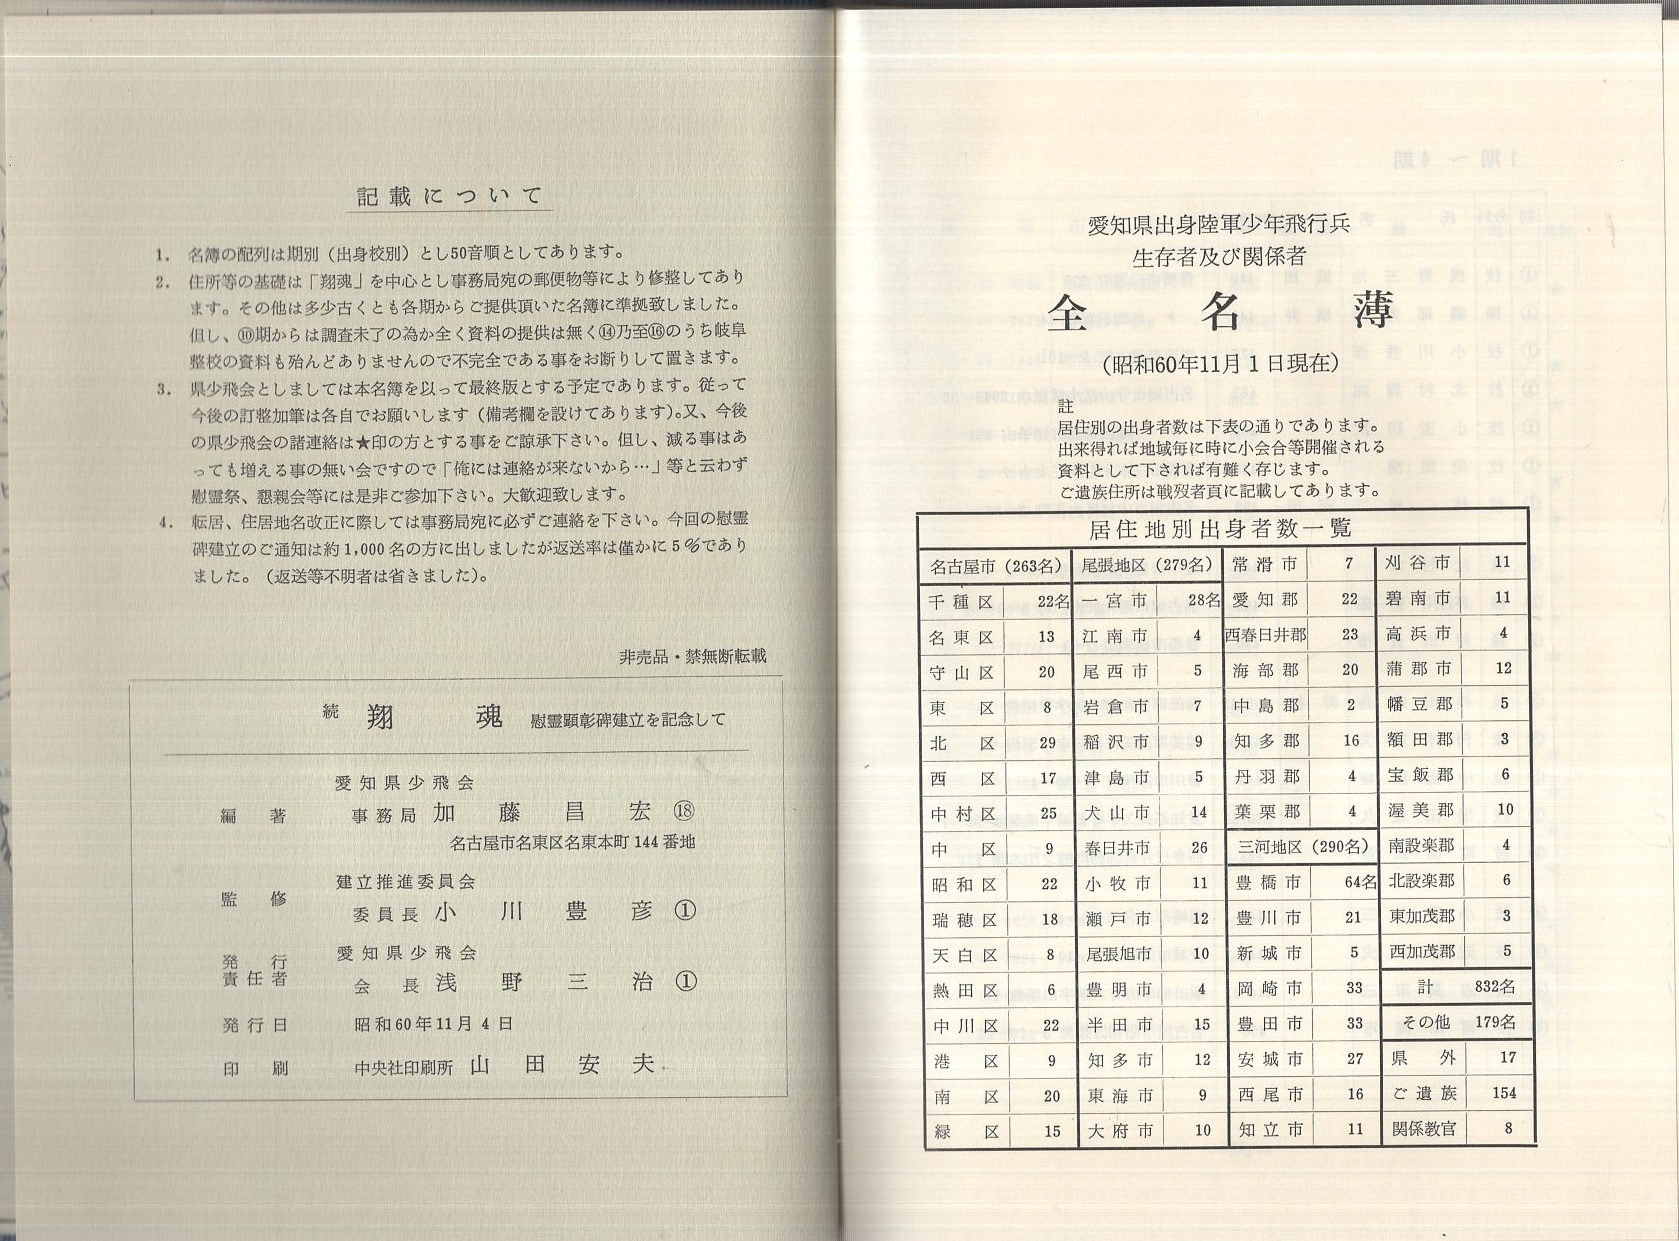 記載について
1. 名簿の配列は期別（出身校別）とし50音順としてあります。
2. 住所等の基礎は「翔魂」を中心とし事務局宛の郵便物等により修整してあり
ます。その他は多少古くとも各期からご提供頂いた名簿に準拠致しました。
但し、⑩期からは調査未了の為か全く資料の提供は無く⑭乃至⑯のうち岐阜
整校の資料も殆んどありませんので不完全である事をお断りして置きます。
3. 県少飛会としましては本名簿を以って最終版とする予定であります。従って
今後の訂整加筆は各自でお願いします（備考欄を設けてあります）。又、今後
の県少飛会の諸連絡は★印の方とする事をご諒承下さい。但し、減る事はあ
っても増える事の無い会ですので「俺には連絡が来ないから…」等と云わず
慰霊祭、懇親会等には是非ご参加下さい。大歓迎致します。
4. 転居、住居地名改正に際しては事務局宛に必ずご連絡を下さい。今回の慰霊
碑建立のご通知は約1,000名の方に出しましたが返送率は僅かに5％であり
ました。（返送等不明者は省きました）。
非売品・禁無断転載
続 翔 魂 慰霊顕彰碑建立を記念して
愛知県少飛会
編著 事務局 加藤昌宏 ⑱
名古屋市名東区名東本町144番地
建立推進委員会
監修 委員長 小川豊彦 ①
愛知県少飛会
発行責任者 会長 浅野三治 ①
発行日 昭和60年11月4日
印刷 中央社印刷所 山田安夫
愛知県出身陸軍少年飛行兵
生存者及び関係者
全名薄
（昭和60年11月1日現在）
註
居住別の出身者数は下表の通りであります。
出来得れば地域毎に時に小会合等開催される
資料として下されば有難く存じます。
ご遺族住所は戦歿者頁に記載してあります。
居住地別出身者数一覧
名古屋市（263名） 尾張地区（279名） 常滑市 7 刈谷市 11
千種区 22名 一宮市 28名 愛知郡 22 碧南市 11
名東区 13 江南市 4 西春日井郡 23 高浜市 4
守山区 20 尾西市 5 海部郡 20 蒲郡市 12
東区 8 岩倉市 7 中島郡 2 幡豆郡 5
北区 29 稲沢市 9 知多郡 16 額田郡 3
西区 17 津島市 5 丹羽郡 4 宝飯郡 6
中村区 25 犬山市 14 葉栗郡 4 渥美郡 10
中区 9 春日井市 26 三河地区（290名） 南設楽郡 4
昭和区 22 小牧市 11 豊橋市 64名 北設楽郡 6
瑞穂区 18 瀬戸市 12 豊川市 21 東加茂郡 3
天白区 8 尾張旭市 10 新城市 5 西加茂郡 5
熱田区 6 豊明市 4 岡崎市 33 計 832名
中川区 22 半田市 15 豊田市 33 その他 179名
港区 9 知多市 12 安城市 27 県外 17
南区 20 東海市 9 西尾市 16 ご遺族 154
緑区 15 大府市 10 知立市 11 関係教官 8